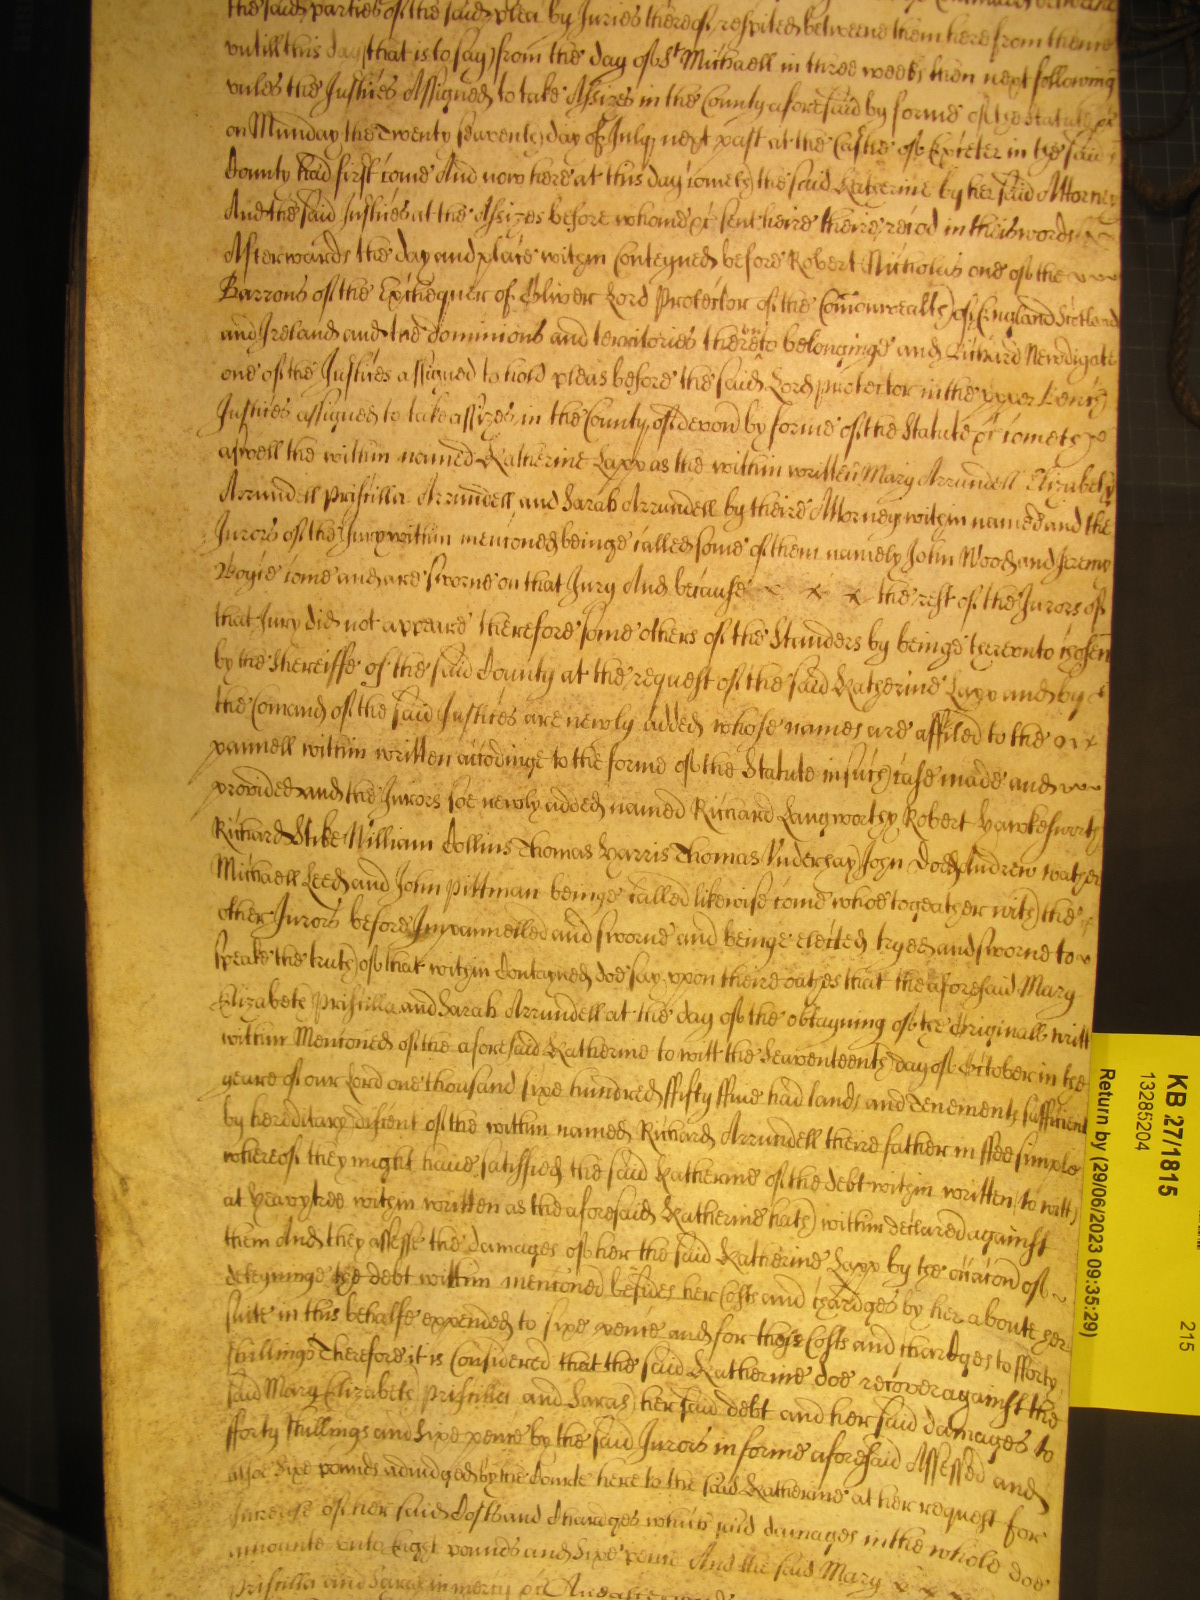 the said parties of the said plea by Juries thereof respited betweene them here from thence
vntill this day that is to say from the day of St Michaell in three weeks then next following
vnles the Justices Assigned to take Assizes in the County aforesaid by forme of the Statute &c
on Munday the Twenty Seaventh day of July next past at the Castle of Exceter in the said
County had first come And now here at this day cometh the said Katherine by her said Attorney
And the said Justices at the Assizes before whome &c sent heire theire record in theis words
Afterwards the day and place within Conteyned before Robert Nicholas one of the
Barrons of the Exchequer of Oliver Lord Protector of the Comonwealth of England Scotland
and Ireland and the dominions and territories thereunto belonginge and Richard Newdigate
one of the Justices assigned to hold pleas before the said Lord protector in the vpper Bench
Justices assigned to take assizes in the County of devon by forme of the Statute &c cometh
aswell the within named Katherine Lapp as the within written Mary Arrundell Elizabeth
Arrundell Priscilla Arrundell and Sarah Arrundell by theire Attorney within named and the
Jurors of the Jury within mencioned beinge called some of them namely John Wood and Jeremy
come and are sworne on that Jury And because the rest of the Jurors of
that Jury did not appeare therefore some others of the Standers by beinge therevnto chosen
by the Shereiffe of the said County at the request of the said Katherine Lapp and by
the Comand of the said Justices are newly added whose names are affiled to the
pannell within written accordinge to the forme of the Statute in such case made and
provided and the Jurors soe newly added named Richard Langworthy Robert Hawkesworth
Richard Stike William Collins Thomas Harris Thomas Vnderhay John Andrew
Michaell Leed and John Pittman beinge called likewise come whoe togeather with the
other Jurors before Impannelled and sworne and beinge elected tryed and sworne to
speake the truth of that within Contayned doe say vpon theire oathes that the aforesaid Mary
Elizabeth Priscilla and Sarah Arrundell at the day of the obtayning of the Originall writt
within Mencioned of the aforesaid Katherine to witt the Seaventeenth day of October in the
yeare of our Lord one thousand sixe hundred ffifty ffiue had lands and Tenements sufficient
by hereditary discent of the within named Richard Arrundell theire father in ffee simple
whereof they might haue satisfied the said Katherine of the debt within written to witt
at Heavytree within written as the aforesaid Katherine hath within declared against
them And they assesse the damages of her the said Katherine Lapp by the occacion of
deteyninge the debt within mencioned besides her Costs and chardges by her aboute her
suite in this behalfe expended to sixe pence and for those Costs and chardges to fforty
shillings Therefore it is Considered that the said Katherine doe recover against the
said Mary Elizabeth Priscilla and Sarah her said debt and her said damages to
fforty shillings and sixe pence by the said Jurors in forme aforesaid Assessed and
alsoe sixe pounds adiudged by the Courte here to the said Katherine at her request for
Increase of her said Costs and Chardges which said damages in the whole doe
amounte vnto Eight pounds and sixe pence And the said Mary
Priscilla and Sarah in mercy &c And afterwards
KB 27/1815
13285204
Return by (29/06/2023 09:35:29)
215